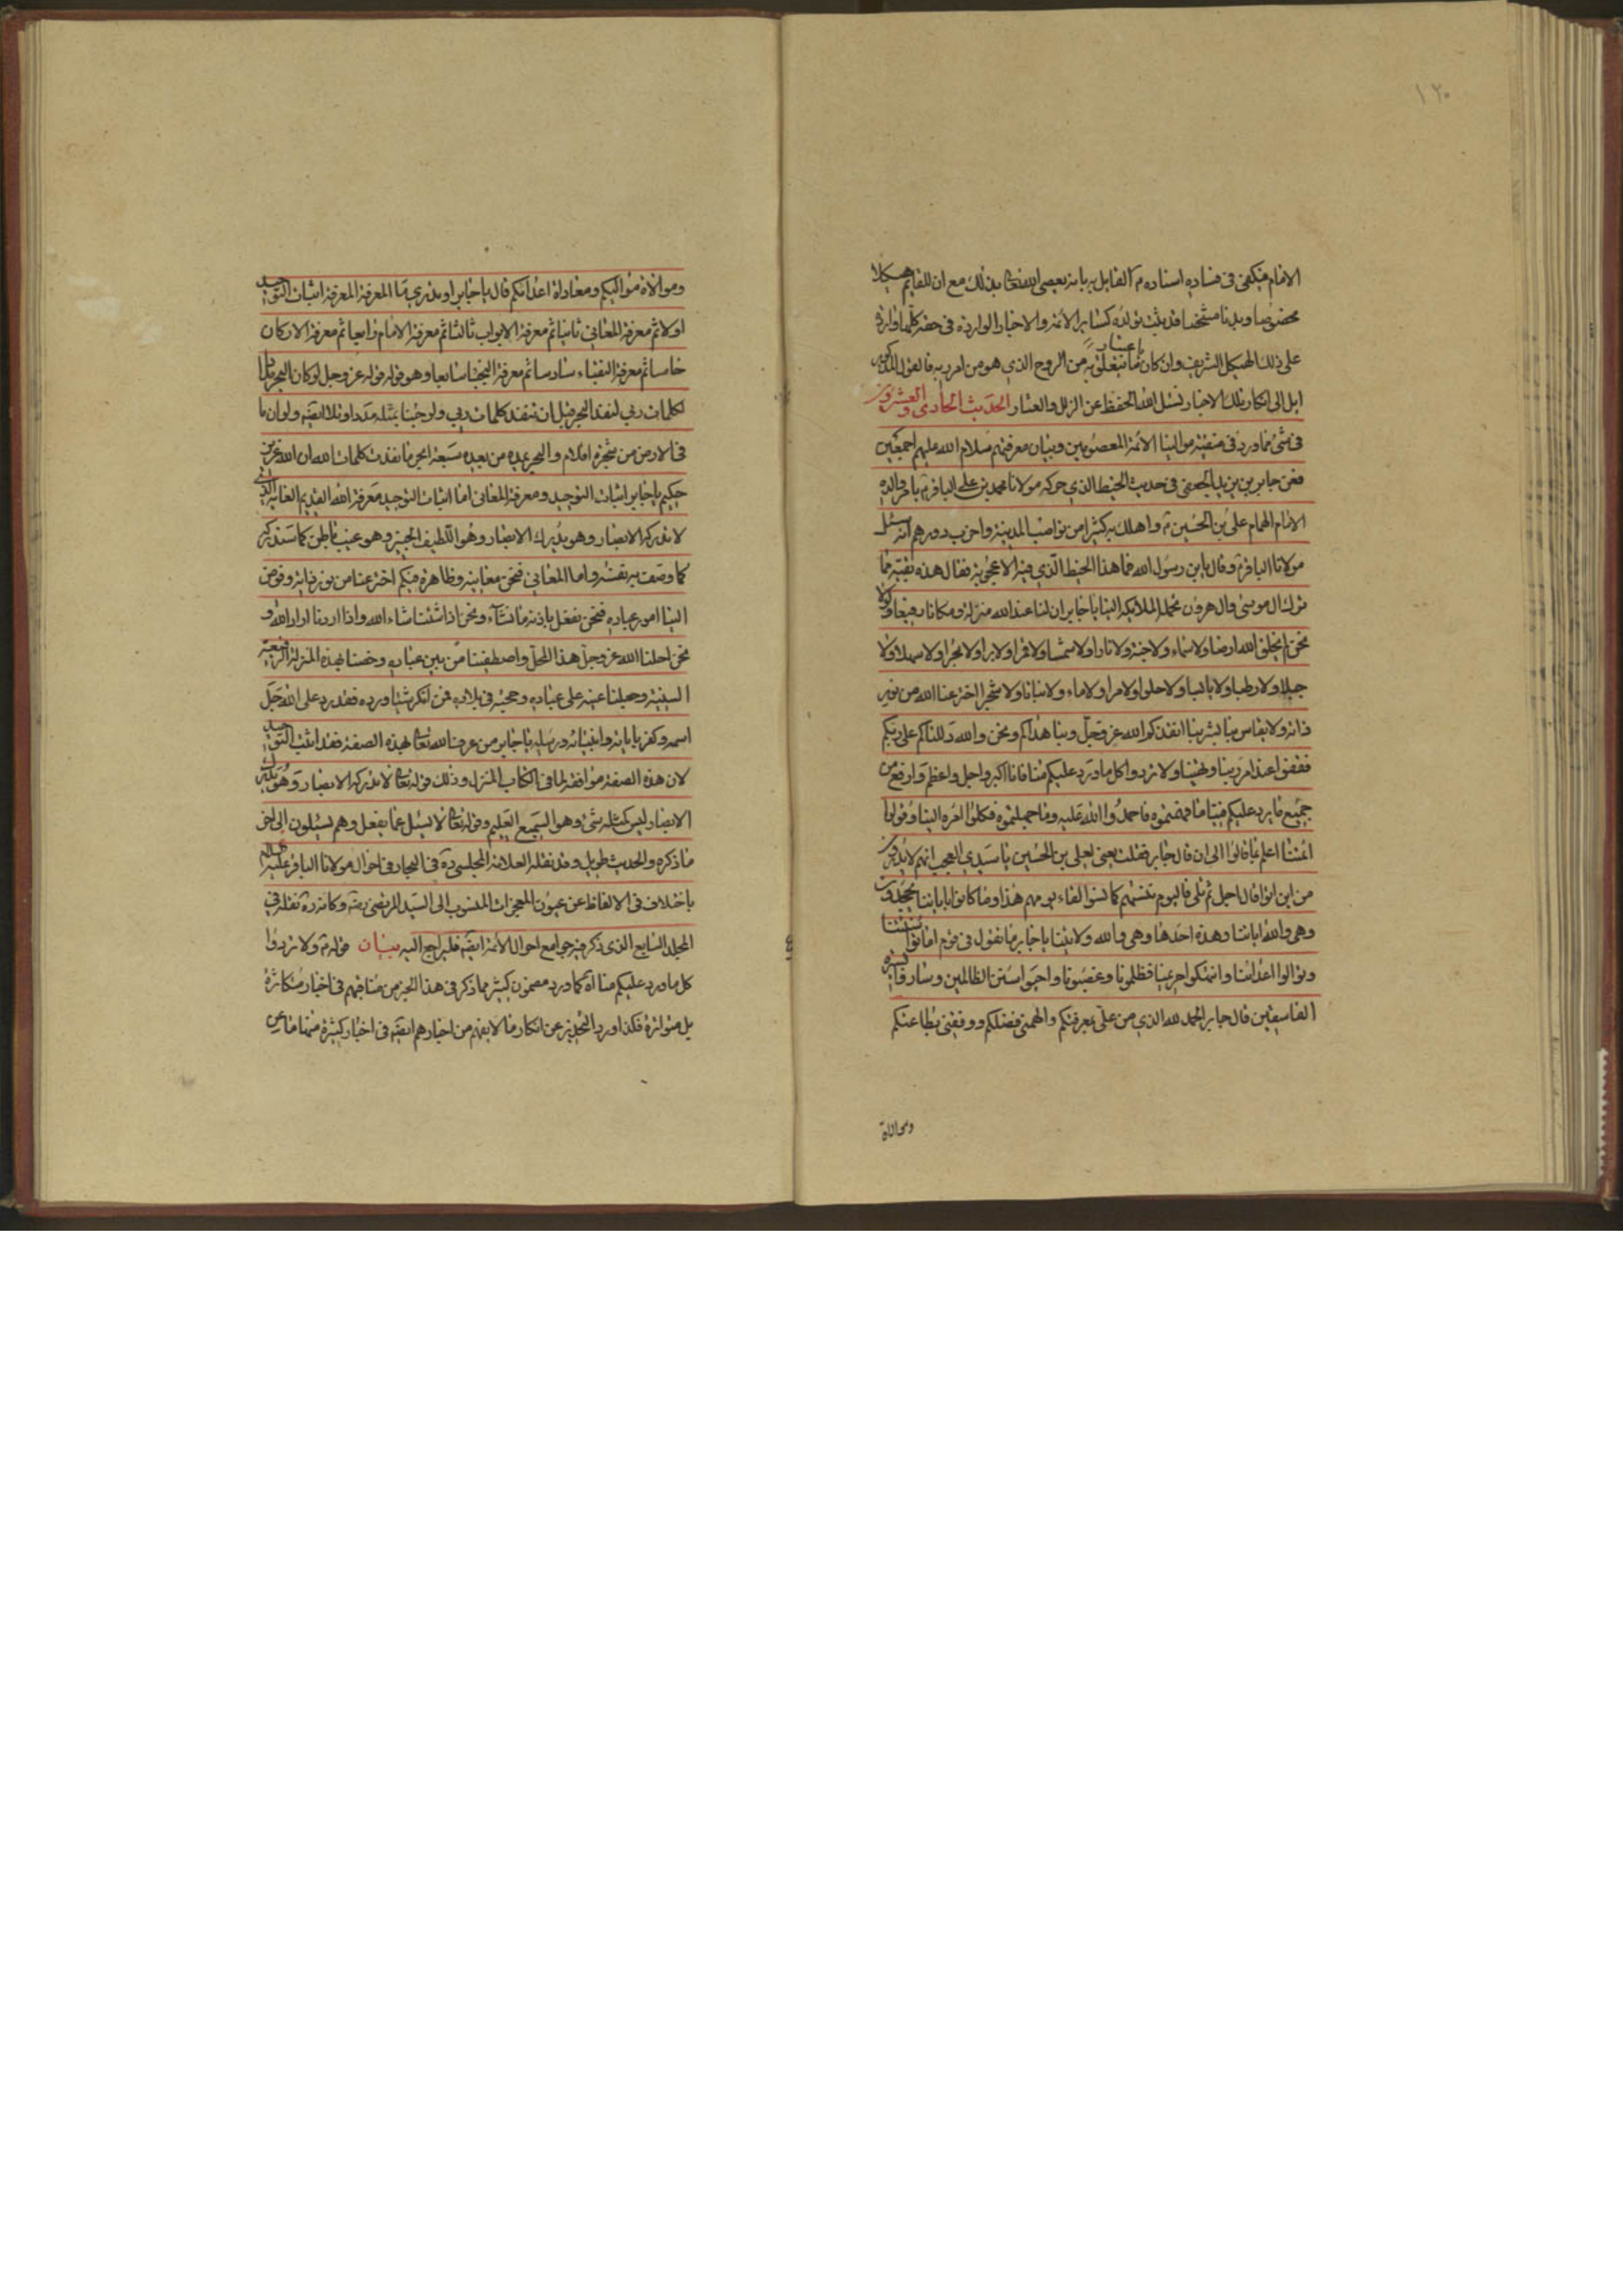 ١٢٠
الامام فيكفى فى فساده اسناده م القايل به بانه يعصى الله تعالى بذلك مع ان للقايم هيكلا
مخصوصا وبدنا مشخصا قد ثبت تولده كساير الائمة والاخبار الواردة فى حقه كلها واردة
على ذلك الهيكل الشريف وان كان باعتبار ما تتعلق به من الروح الذي هو من امر ربه فالقول المذكور
ايل الى انكار تلك الاخبار نسئل الله الحفظ عن الزلل والعثار الحديث الحادى والعشرون
فى شئ مما ورد فى منقبة موالينا الائمة المعصومين وبيان معرفتهم سلام الله عليهم اجمعين
فعن جابر بن يزيد الجعفى فى حديث الخيط الذي حركه مولانا محمد بن على الباقر ع بامر والده
الامام الهمام على بن الحسين ع واهلك به كثيرا من نواصب المدينة واخرب دورهم انه سئل
مولانا الباقر ع وقال يابن رسول الله فما هذا الخيط الذي فيه الاعجوبة فقال هذه بقية مما
ترك ال موسى وال هرون تحمله الملائكة الينا يا جابر ان لنا عند الله منزلة ومكانا رفيعا ولولا
نحن لم يخلق الله ارضا ولا سماء ولا جنة ولا نارا ولا شمسا ولا قمرا ولا برا ولا بحرا ولا سهلا ولا
جبلا ولا رطبا ولا يابسا ولا حلوا ولا مرا ولا ماء ولا نباتا ولا شجرا اخترعنا الله من نور
ذاته ولا يقاس بنا بشر بنا انقذكم الله عز وجل وبنا هداكم ونحن والله دللناكم على ربكم
فقفوا عند امرنا ونهينا ولا تردوا كل ما ورد عليكم منا فانا اكبر واجل واعظم وارفع من
جميع ما يرد عليكم منا ما فهمتموه فاحمدوا الله عليه وما جهلتموه فكلوا امره الينا وقولوا
ائمتنا اعلم بما قالوا الى ان قال جابر فقلت يعنى لعلى بن الحسين يا سيدي العجب انهم لا يدرون
من اين اتوا قال اجل ثم تلى فاليوم ننسيهم كما نسوا لقاء يومهم هذا وما كانوا باياتنا يجحدون
وهى والله اياتنا وهذه احدها وهى والله ولايتنا يا جابر ما تقول فى قوم اماتوا سنتنا
وتوالوا اعدائنا وانتهكوا حريمنا فظلمونا وغصبونا واحيوا سنن الظالمين وساروا بسيرة
الفاسقين قال جابر الحمد لله الذي من على بمعرفتكم والهمنى فضلكم ووفقنى بطاعتكم
وموالاة
وموالاة مواليكم ومعاداة اعدائكم قال يا جابر او تدري ما المعرفة المعرفة اثبات التوحيد
اولا ثم معرفة المعانى ثانيا ثم معرفة الابواب ثالثا ثم معرفة الامام رابعا ثم معرفة الاركان
خامسا ثم معرفة النقباء سادسا ثم معرفة النجباء سابعا وهو قوله عز وجل لو كان البحر مدادا
لكلمات ربى لنفد البحر قبل ان تنفد كلمات ربى ولو جئنا بمثله مددا وتلا ايضا ولو ان ما
فى الارض من شجرة اقلام والبحر يمده من بعده سبعة ابحر ما نفدت كلمات الله ان الله عزيز
حكيم يا جابر اثبات التوحيد ومعرفة المعانى اما اثبات التوحيد معرفة الله القديم الغاية الذي
لا تدركه الابصار وهو يدرك الابصار وهو اللطيف الخبير وهو غيب باطن كما سنذكره
كما وصف به نفسه واما المعانى فنحن معانيه وظاهره فيكم اخترعنا من نور ذاته وفوض
الينا امور عباده فنحن نفعل باذنه ما نشاء ونحن اذا شئنا شاء الله واذا اردنا اراد الله و
نحن احلنا الله عز وجل هذا المحل واصطفينا من بين عباده وخصنا بهذه المنزلة الرفيعة
السنية وجعلنا عينه على عباده وحجته فى بلاده فمن انكر شيئا ورده فقد رد على الله جل
اسمه وكفر باياته وانبيائه ورسله يا جابر من عرف الله تعالى بهذه الصفة فقد اثبت التوحيد
لان هذه الصفة موافقة لما فى الكتاب المنزل وذلك قوله تعالى لا تدركه الابصار وهو يدرك
الابصار ليس كمثله شئ وهو السميع العليم وقوله تعالى لا يسئل عما يفعل وهم يسئلون الى اخر
ما ذكره والحديث طويل وقد نقله العلامة المجلسى ره فى البحار فى احوال مولانا الباقر عليه السلام
باختلاف فى الالفاظ عن عيون المعجزات المنسوب الى السيد المرتضى وكانه ره نقله فى
المجلد السابع الذى ذكر فيه جوامع احوال الائمة ايضا فليراجع اليه بيان قوله ع ولا تردوا
كل ما ورد عليكم منا اه كما ورد مضمون كثير مما ذكر فى هذا الخبر من مناقبهم فى اخبار متكاثرة
بل متواترة فكذا ورد التحذير عن انكار ما لا يفهم من اخبارهم ايضا فى اخبار كثيرة منها ما عن